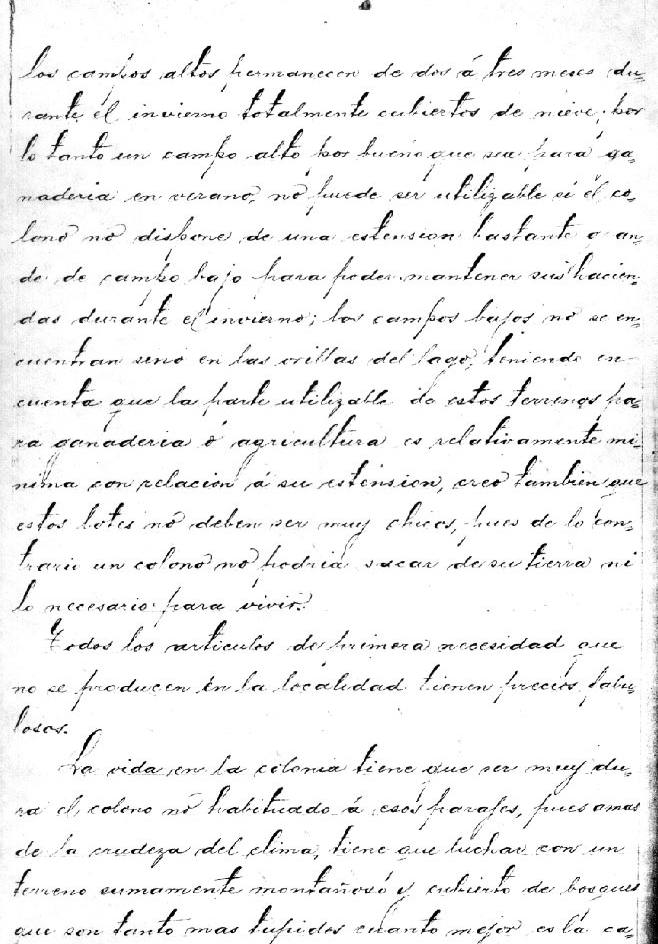 los campos altos permanecen de dos á tres meses du-
rante el invierno totalmente cubiertos de nieve; por
lo tanto un campo alto por bueno que sea para ga-
naderia en verano, no puede ser utilizable si él co-
lono no dispone de una estension bastante gran-
de de campo bajo para poder mantener sus hacien-
das durante el invierno; los campos bajos no se en-
cuentran sinó en las orillas del lago, teniendo en
cuenta que la parte utilizable de estos terrenos pa-
ra ganaderia ó agricultura es relativamente mí-
nima con relacion á su estension, creo tambien que
estos lotes no deben ser muy chicos, pues de lo con-
trario un colono no podria sacar de su tierra ni
lo necesario para vivir.
Todos los articulos de primera necesidad que
no se producen en la localidad tienen precios fabu-
losos.
La vida en la colonia tiene que ser muy du-
ra el colono no habituado á esos parajes, pues amas
de la crudeza del clima, tiene que luchar con un
terreno sumamente montañoso y cubierto de bosques
que son tanto mas tupidos cuanto mejor es la ca-